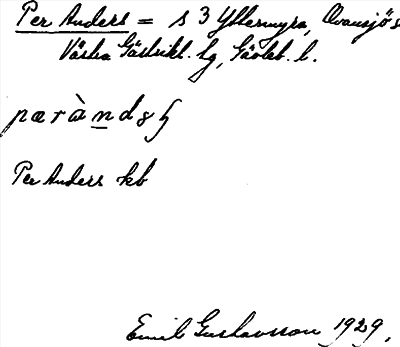 Per Anders = s 3 Yttermyra, Ovansjö s
Västra Gästrikl. tg, Gävleb. l.
pæràndsh
Per Anders kb
Emil Gustavsson 1929.